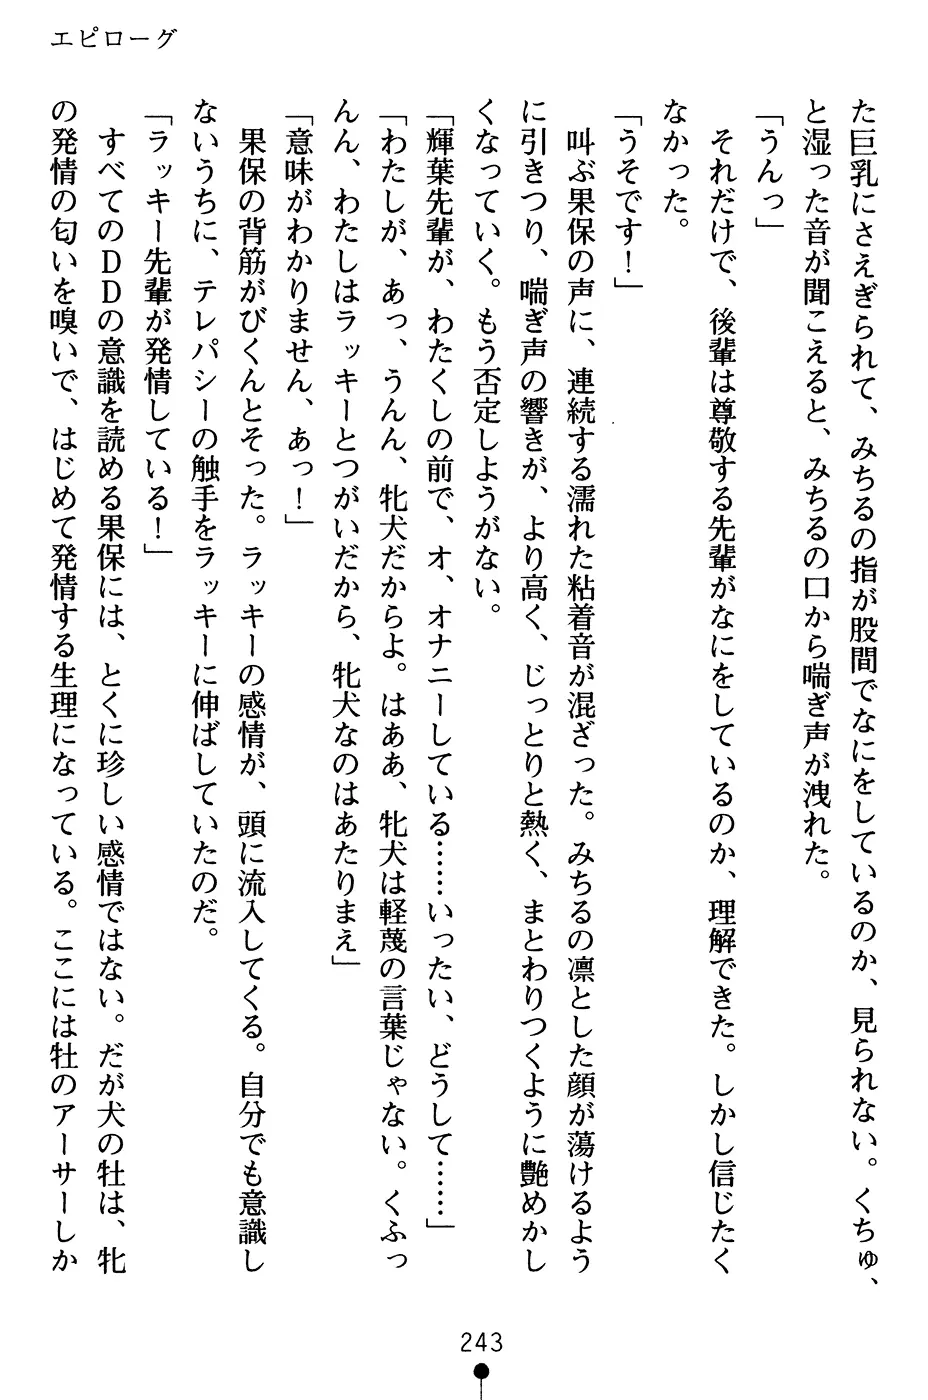 エピローグ
た巨乳にさえぎられて、みちるの指が股間でなにをしているのか、見られない。くちゅ、
と湿った音が聞こえると、みちるの口から喘ぎ声が洩れた。
「うんっ」
　それだけで、後輩は尊敬する先輩がなにをしているのか、理解できた。しかし信じたく
なかった。
「うそです！」
　叫ぶ果保の声に、連続する濡れた粘着音が混ざった。みちるの凛とした顔が蕩けるよう
に引きつり、喘ぎ声の響きが、より高く、じっとりと熱く、まとわりつくように艶めかし
くなっていく。もう否定しようがない。
「輝葉先輩が、わたくしの前で、オ、オナニーしている……いったい、どうして……」
「わたしが、あっ、うんん、牝犬だからよ。はああ、牝犬は軽蔑の言葉じゃない。くふっ
んん、わたしはラッキーとつがいだから、牝犬なのはあたりまえ」
「意味がわかりません、あっ！」
　果保の背筋がびくんとそった。ラッキーの感情が、頭に流入してくる。自分でも意識し
ないうちに、テレパシーの触手をラッキーに伸ばしていたのだ。
「ラッキー先輩が発情している！」
　すべてのＤＤの意識を読める果保には、とくに珍しい感情ではない。だが犬の牡は、牝
の発情の匂いを嗅いで、はじめて発情する生理になっている。ここには牡のアーサーしか
243